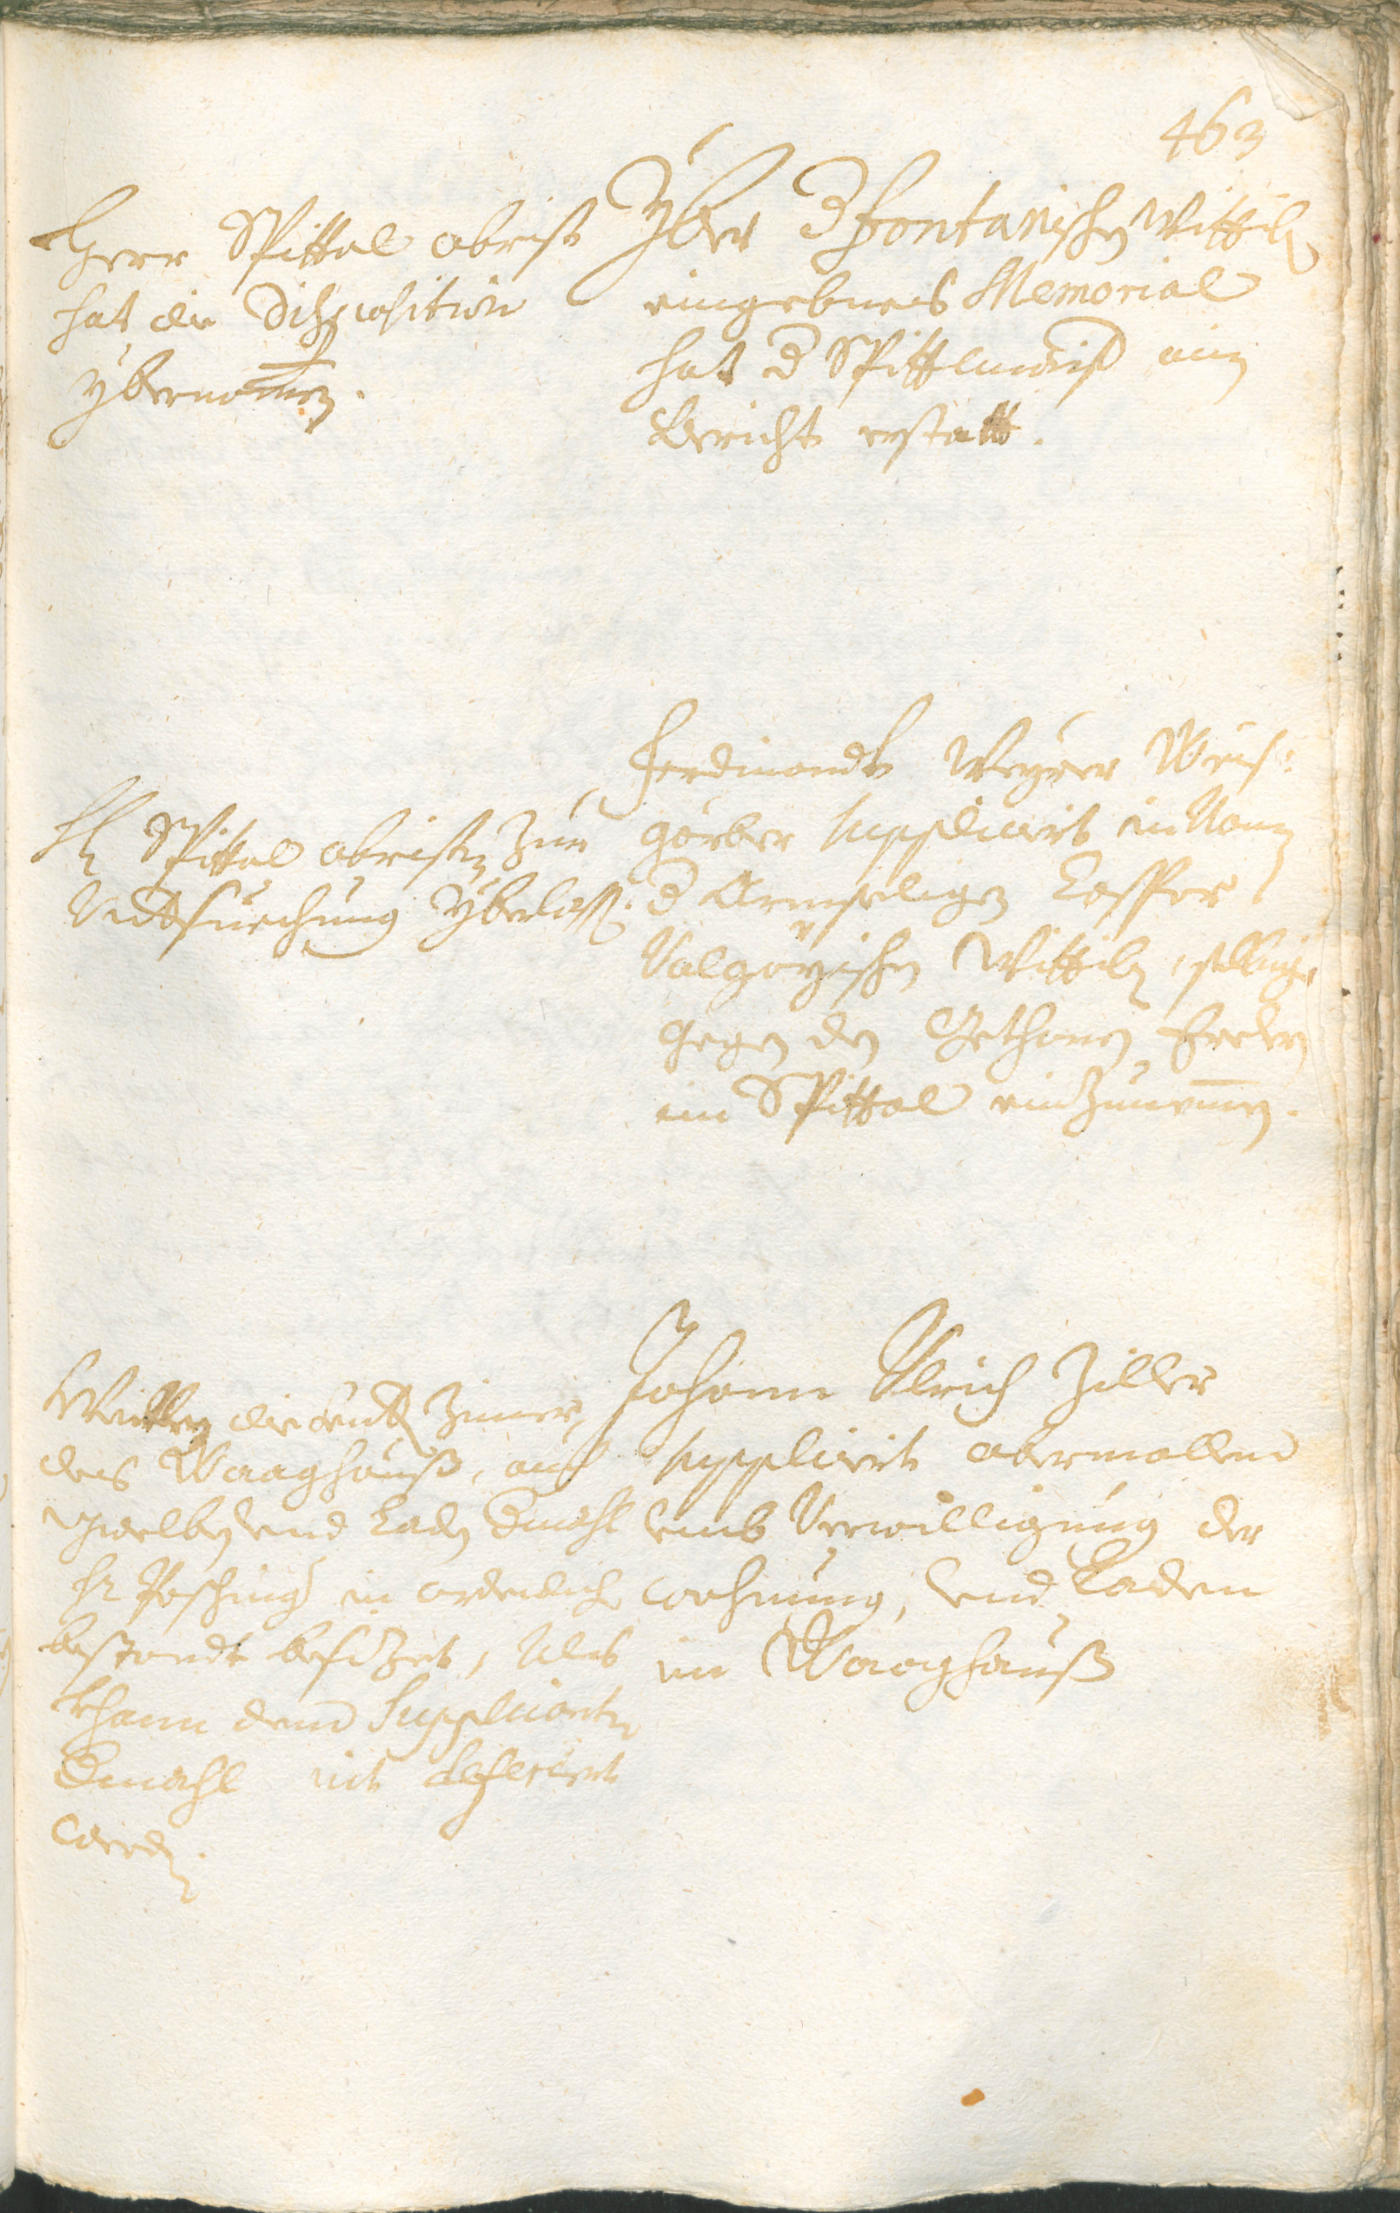 463
Herr Spittal obrist
hat die Disposition
ybernomen.
Yber d Fontanischen Wittib
eingebnes Memorial
hat d Spittlmaister ein
Bericht erstatt.
H Spittal obristen zur
Undtersuechung yberlassen.
Ferdinandt Weyrer Weis:
görber suppliciert in Namen
d Armseeligen
Valgoyischen Wittib, selbige
gegen den
im Spittal einzunemen.
Weillen die Zimer
des Waaghauß, auch
gwelben und Laden dmahl
Hr Pocking in ordenliche
bestandt besizet, Als
khann dem Supplicanten
dmahl nit deferiert
werden.
Johann Ulrich Ziller
supplicirt abermallen
umb Verwilligung der
wohnung, und Laden
im Waaghauß